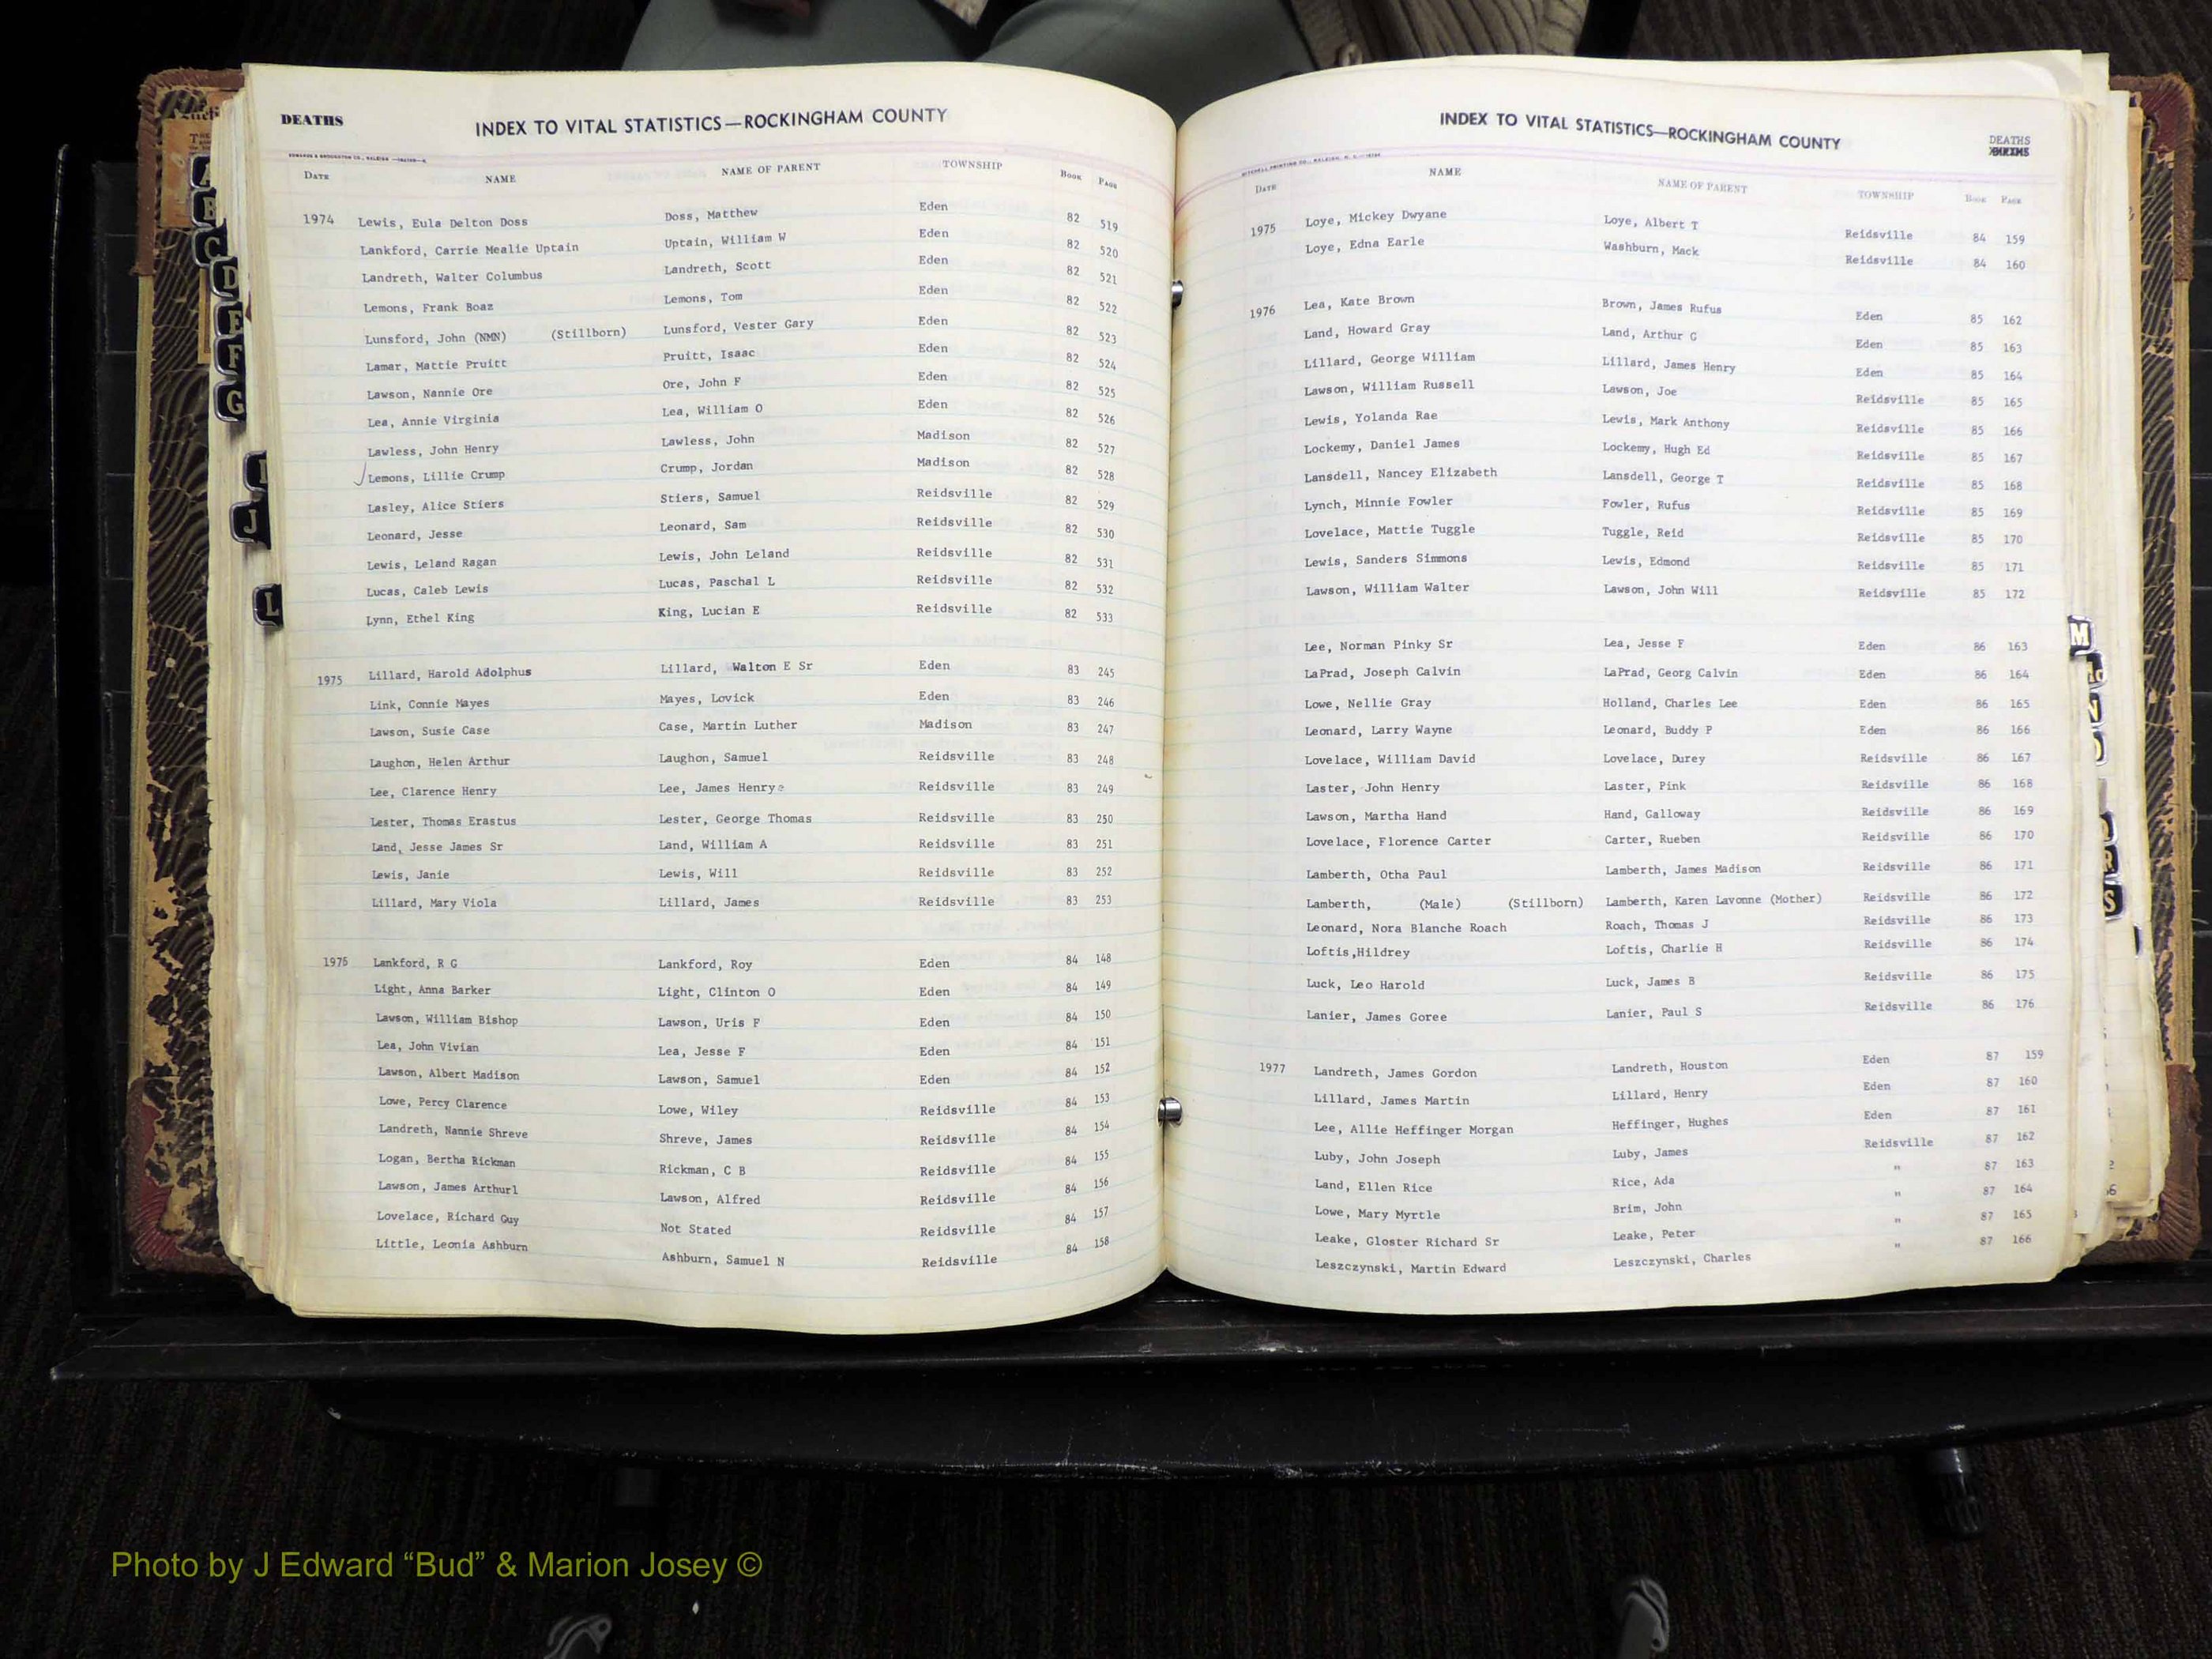 DEATHS
INDEX TO VITAL STATISTICS—ROCKINGHAM COUNTY
DATE NAME NAME OF PARENT TOWNSHIP BOOK PAGE
1974 Lewis, Eula Delton Doss Doss, Matthew Eden 82 519
Lankford, Carrie Mealie Uptain Uptain, William W Eden 82 520
Landreth, Walter Columbus Landreth, Scott Eden 82 521
Lemons, Frank Boaz Lemons, Tom Eden 82 522
Lunsford, John (NMN) (Stillborn) Lunsford, Vester Gary Eden 82 523
Lamar, Mattie Pruitt Pruitt, Isaac Eden 82 524
Lawson, Nannie Ore Ore, John F Eden 82 525
Lea, Annie Virginia Lea, William O Eden 82 526
Lawless, John Henry Lawless, John Madison 82 527
Lemons, Lillie Crump Crump, Jordan Madison 82 528
Lasley, Alice Stiers Stiers, Samuel Reidsville 82 529
Leonard, Jesse Leonard, Sam Reidsville 82 530
Lewis, Leland Ragan Lewis, John Leland Reidsville 82 531
Lucas, Caleb Lewis Lucas, Paschal L Reidsville 82 532
Lynn, Ethel King King, Lucian E Reidsville 82 533
1975 Lillard, Harold Adolphus Lillard, Walton E Sr Eden 83 245
Link, Connie Mayes Mayes, Lovick Eden 83 246
Lawson, Susie Case Case, Martin Luther Madison 83 247
Laughon, Helen Arthur Laughon, Samuel Reidsville 83 248
Lee, Clarence Henry Lee, James Henry Reidsville 83 249
Lester, Thomas Erastus Lester, George Thomas Reidsville 83 250
Land, Jesse James Sr Land, William A Reidsville 83 251
Lewis, Janie Lewis, Will Reidsville 83 252
Lillard, Mary Viola Lillard, James Reidsville 83 253
1975 Lankford, R G Lankford, Roy Eden 84 148
Light, Anna Barker Light, Clinton O Eden 84 149
Lawson, William Bishop Lawson, Uris F Eden 84 150
Lea, John Vivian Lea, Jesse F Eden 84 151
Lawson, Albert Madison Lawson, Samuel Eden 84 152
Lowe, Percy Clarence Lowe, Wiley Reidsville 84 153
Landreth, Nannie Shreve Shreve, James Reidsville 84 154
Logan, Bertha Rickman Rickman, C B Reidsville 84 155
Lawson, James Arthurl Lawson, Alfred Reidsville 84 156
Lovelace, Richard Guy Not Stated Reidsville 84 157
Little, Leonia Ashburn Ashburn, Samuel N Reidsville 84 158
INDEX TO VITAL STATISTICS—ROCKINGHAM COUNTY
DEATHS
BIRTHS
DATE NAME NAME OF PARENT TOWNSHIP BOOK PAGE
1975 Loye, Mickey Dwyane Loye, Albert T Reidsville 84 159
Loye, Edna Earle Washburn, Mack Reidsville 84 160
1976 Lea, Kate Brown Brown, James Rufus Eden 85 162
Land, Howard Gray Land, Arthur G Eden 85 163
Lillard, George William Lillard, James Henry Eden 85 164
Lawson, William Russell Lawson, Joe Reidsville 85 165
Lewis, Yolanda Rae Lewis, Mark Anthony Reidsville 85 166
Lockemy, Daniel James Lockemy, Hugh Ed Reidsville 85 167
Lansdell, Nancey Elizabeth Lansdell, George T Reidsville 85 168
Lynch, Minnie Fowler Fowler, Rufus Reidsville 85 169
Lovelace, Mattie Tuggle Tuggle, Reid Reidsville 85 170
Lewis, Sanders Simmons Lewis, Edmond Reidsville 85 171
Lawson, William Walter Lawson, John Will Reidsville 85 172
Lee, Norman Pinky Sr Lea, Jesse F Eden 86 163
LaPrad, Joseph Calvin LaPrad, Georg Calvin Eden 86 164
Lowe, Nellie Gray Holland, Charles Lee Eden 86 165
Leonard, Larry Wayne Leonard, Buddy P Eden 86 166
Lovelace, William David Lovelace, Durey Reidsville 86 167
Laster, John Henry Laster, Pink Reidsville 86 168
Lawson, Martha Hand Hand, Galloway Reidsville 86 169
Lovelace, Florence Carter Carter, Rueben Reidsville 86 170
Lamberth, Otha Paul Lamberth, James Madison Reidsville 86 171
Lamberth, (Male) (Stillborn) Lamberth, Karen Lavonne (Mother) Reidsville 86 172
Leonard, Nora Blanche Roach Roach, Thomas J Reidsville 86 173
Loftis,Hildrey Loftis, Charlie H Reidsville 86 174
Luck, Leo Harold Luck, James B Reidsville 86 175
Lanier, James Goree Lanier, Paul S Reidsville 86 176
1977 Landreth, James Gordon Landreth, Houston Eden 87 159
Lillard, James Martin Lillard, Henry Eden 87 160
Lee, Allie Heffinger Morgan Heffinger, Hughes Eden 87 161
Luby, John Joseph Luby, James Reidsville 87 162
Land, Ellen Rice Rice, Ada " 87 163
Lowe, Mary Myrtle Brim, John " 87 164
Leake, Gloster Richard Sr Leake, Peter " 87 165
Leszczynski, Martin Edward Leszczynski, Charles " 87 166
A
B
C
D
E
F
G
I
J
L
M
N
R
S
Photo by J Edward “Bud” & Marion Josey ©